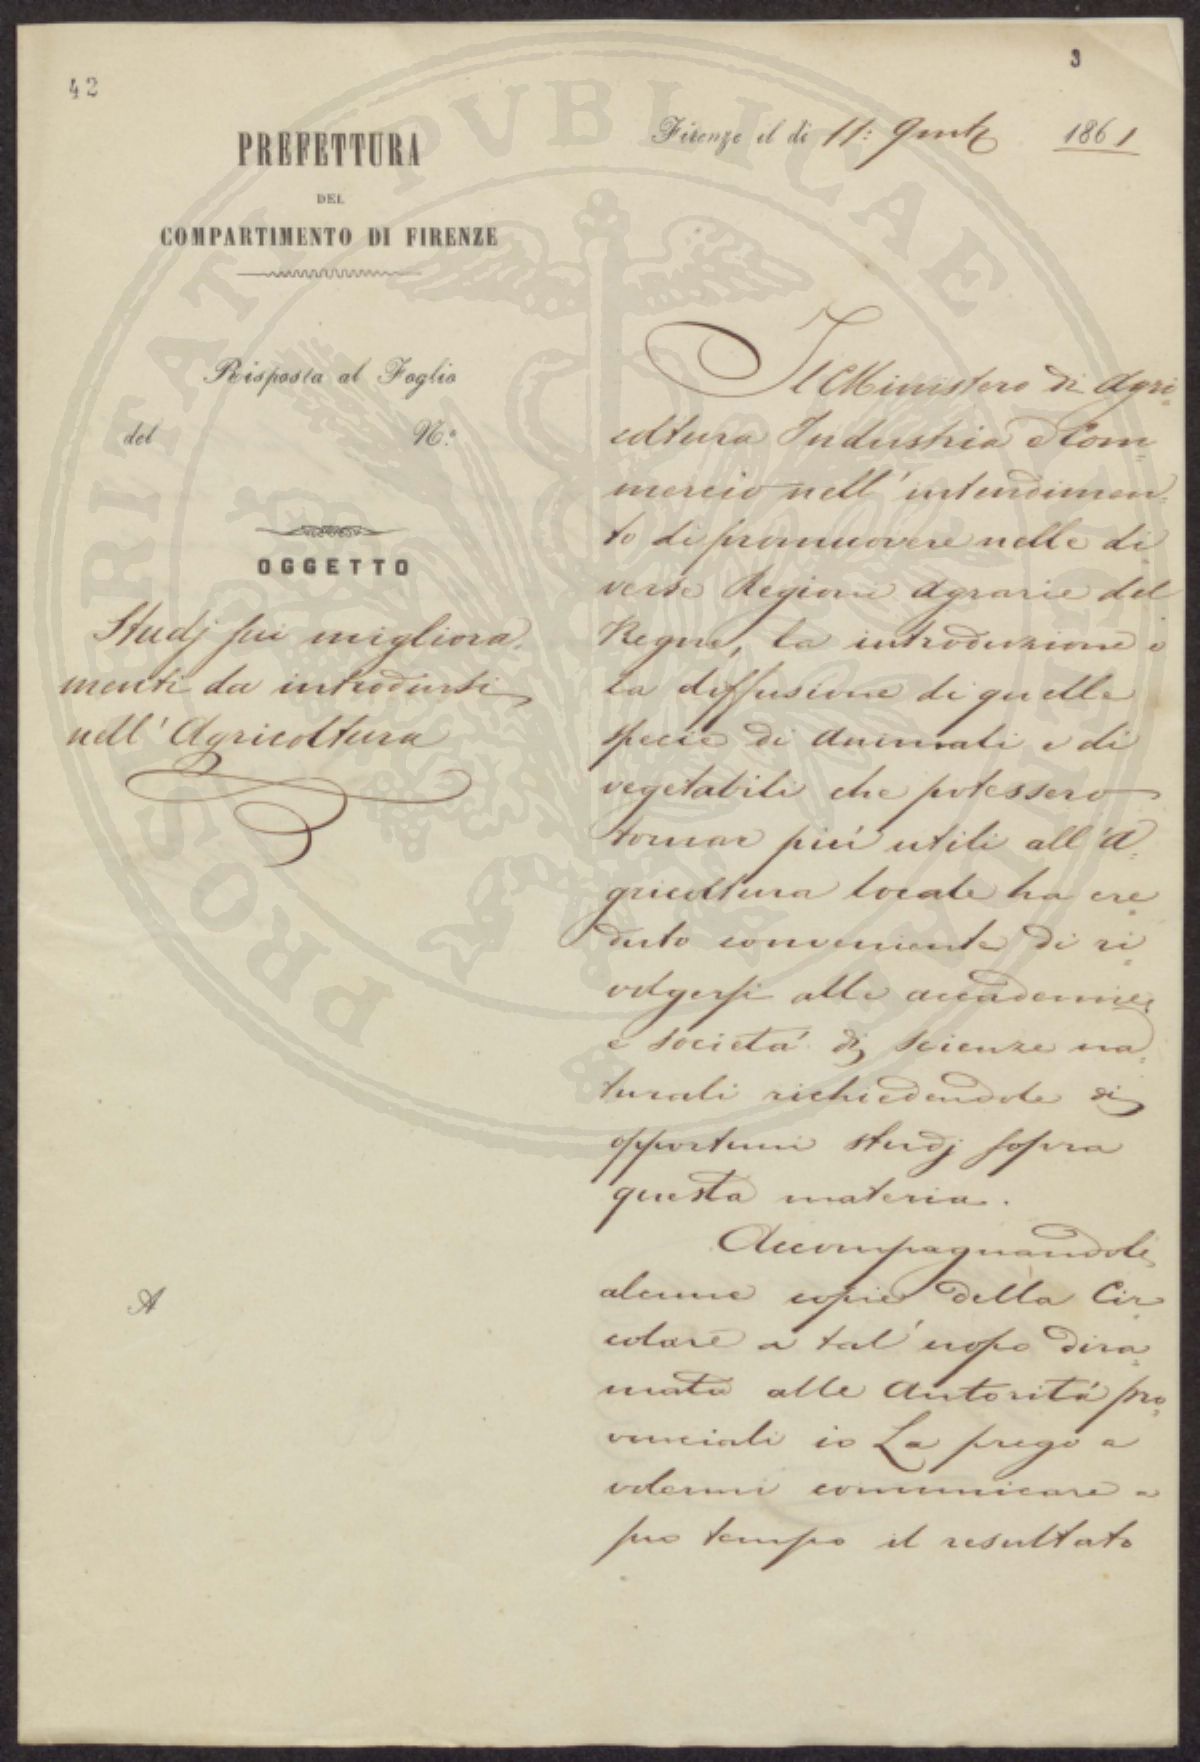 42
3
PREFETTURA
DEL
COMPARTIMENTO DI FIRENZE
Firenze il dì 11: 9mbre 1861
Risposta al Foglio
del N.°
OGGETTO
Studj sui migliora-
menti da introdursi
nell'Agricoltura
A
Il Ministero di Agri-
coltura Industria e Com-
mercio nell'intendimen-
to di promuovere nelle di-
verse Regioni Agrarie del
Regno, la introduzione e
la diffusione di quelle
specie di animali e di
vegetabili che potessero
tornar più utili all'A-
gricoltura locale ha cre-
duto conveniente di ri-
volgersi alle accademie
e società di scienze na-
turali richiedendole di
opportuni studj sopra
questa materia.
Accompagnandole
alcune copie della Cir-
colare a tal'uopo dira-
mata alle Autorità pro-
vinciali io La prego a
volermi comunicare a
suo tempo il resultato
PROSPERITATI PUBLICAE